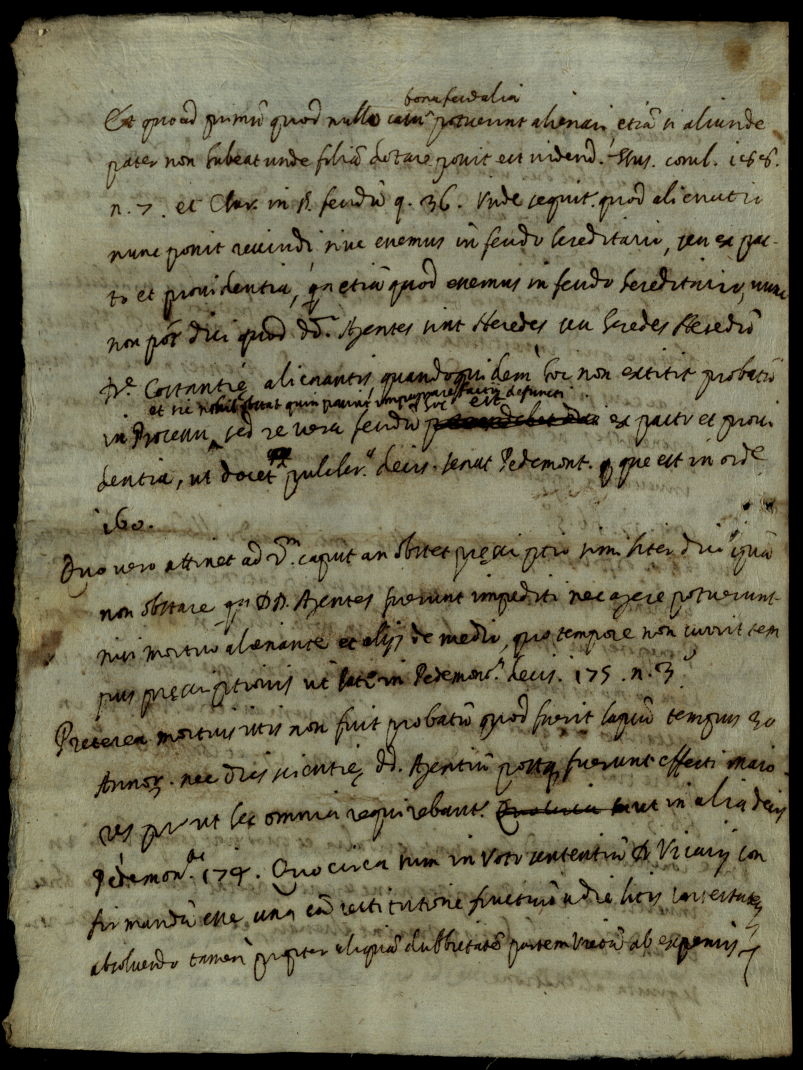 bona feudalia
Et quoad primū quod nullo casu potuerint alienari etiā si aliunde
pater non habeat unde filiā dotare possit est vidend. consil. 166.
n. 7. et Clar. in §. feudū q. 36. Unde sequit. quod alienatio
nunc possit revindi sive enemus in feudo hereditario, seu ex pac-
to et providentia, etiā quod enemus in feudo hereditario, nunc
non pōt dici quod dd. Agentes sint Heredes seu heredes Herediū
D.e Costantię alienantis quandoquidem hoc non extitit probatū
et sic nihil obstat quin possint impugnare factū defuncti
hoc est
in Processu, sed re vera feudū ex pacto et provi
dentia, ut docet decis. senat Pedemont. que est in ordē
160.
Quo vero attinet ad 2.m caput an obstet pręscriptio similiter
non obstare DD. Agentes fuerunt impediti nec agere potuerunt
nisi mortuo alienante et alijs de medio, quo tempore non currit tem
pus pręscriptionis ut late in Pedemont. decis. 175. n. 3
Preterea mortuis istis non fuit probatū quod fuerit lapsū tempus 30
Annoꝝ. nec scientię dd. Agentiū postq fuerunt effecti maio
res prout hec omnia requirebant. ut in alia decis
Pedemon. 174. Quo circa sum in voto sententiā D Vicarij con
firmandā esse una cū restitutione fructuū a die litis contestatę
absolvendo tamen propter aliquā dubbietatē partem victā ab expensis